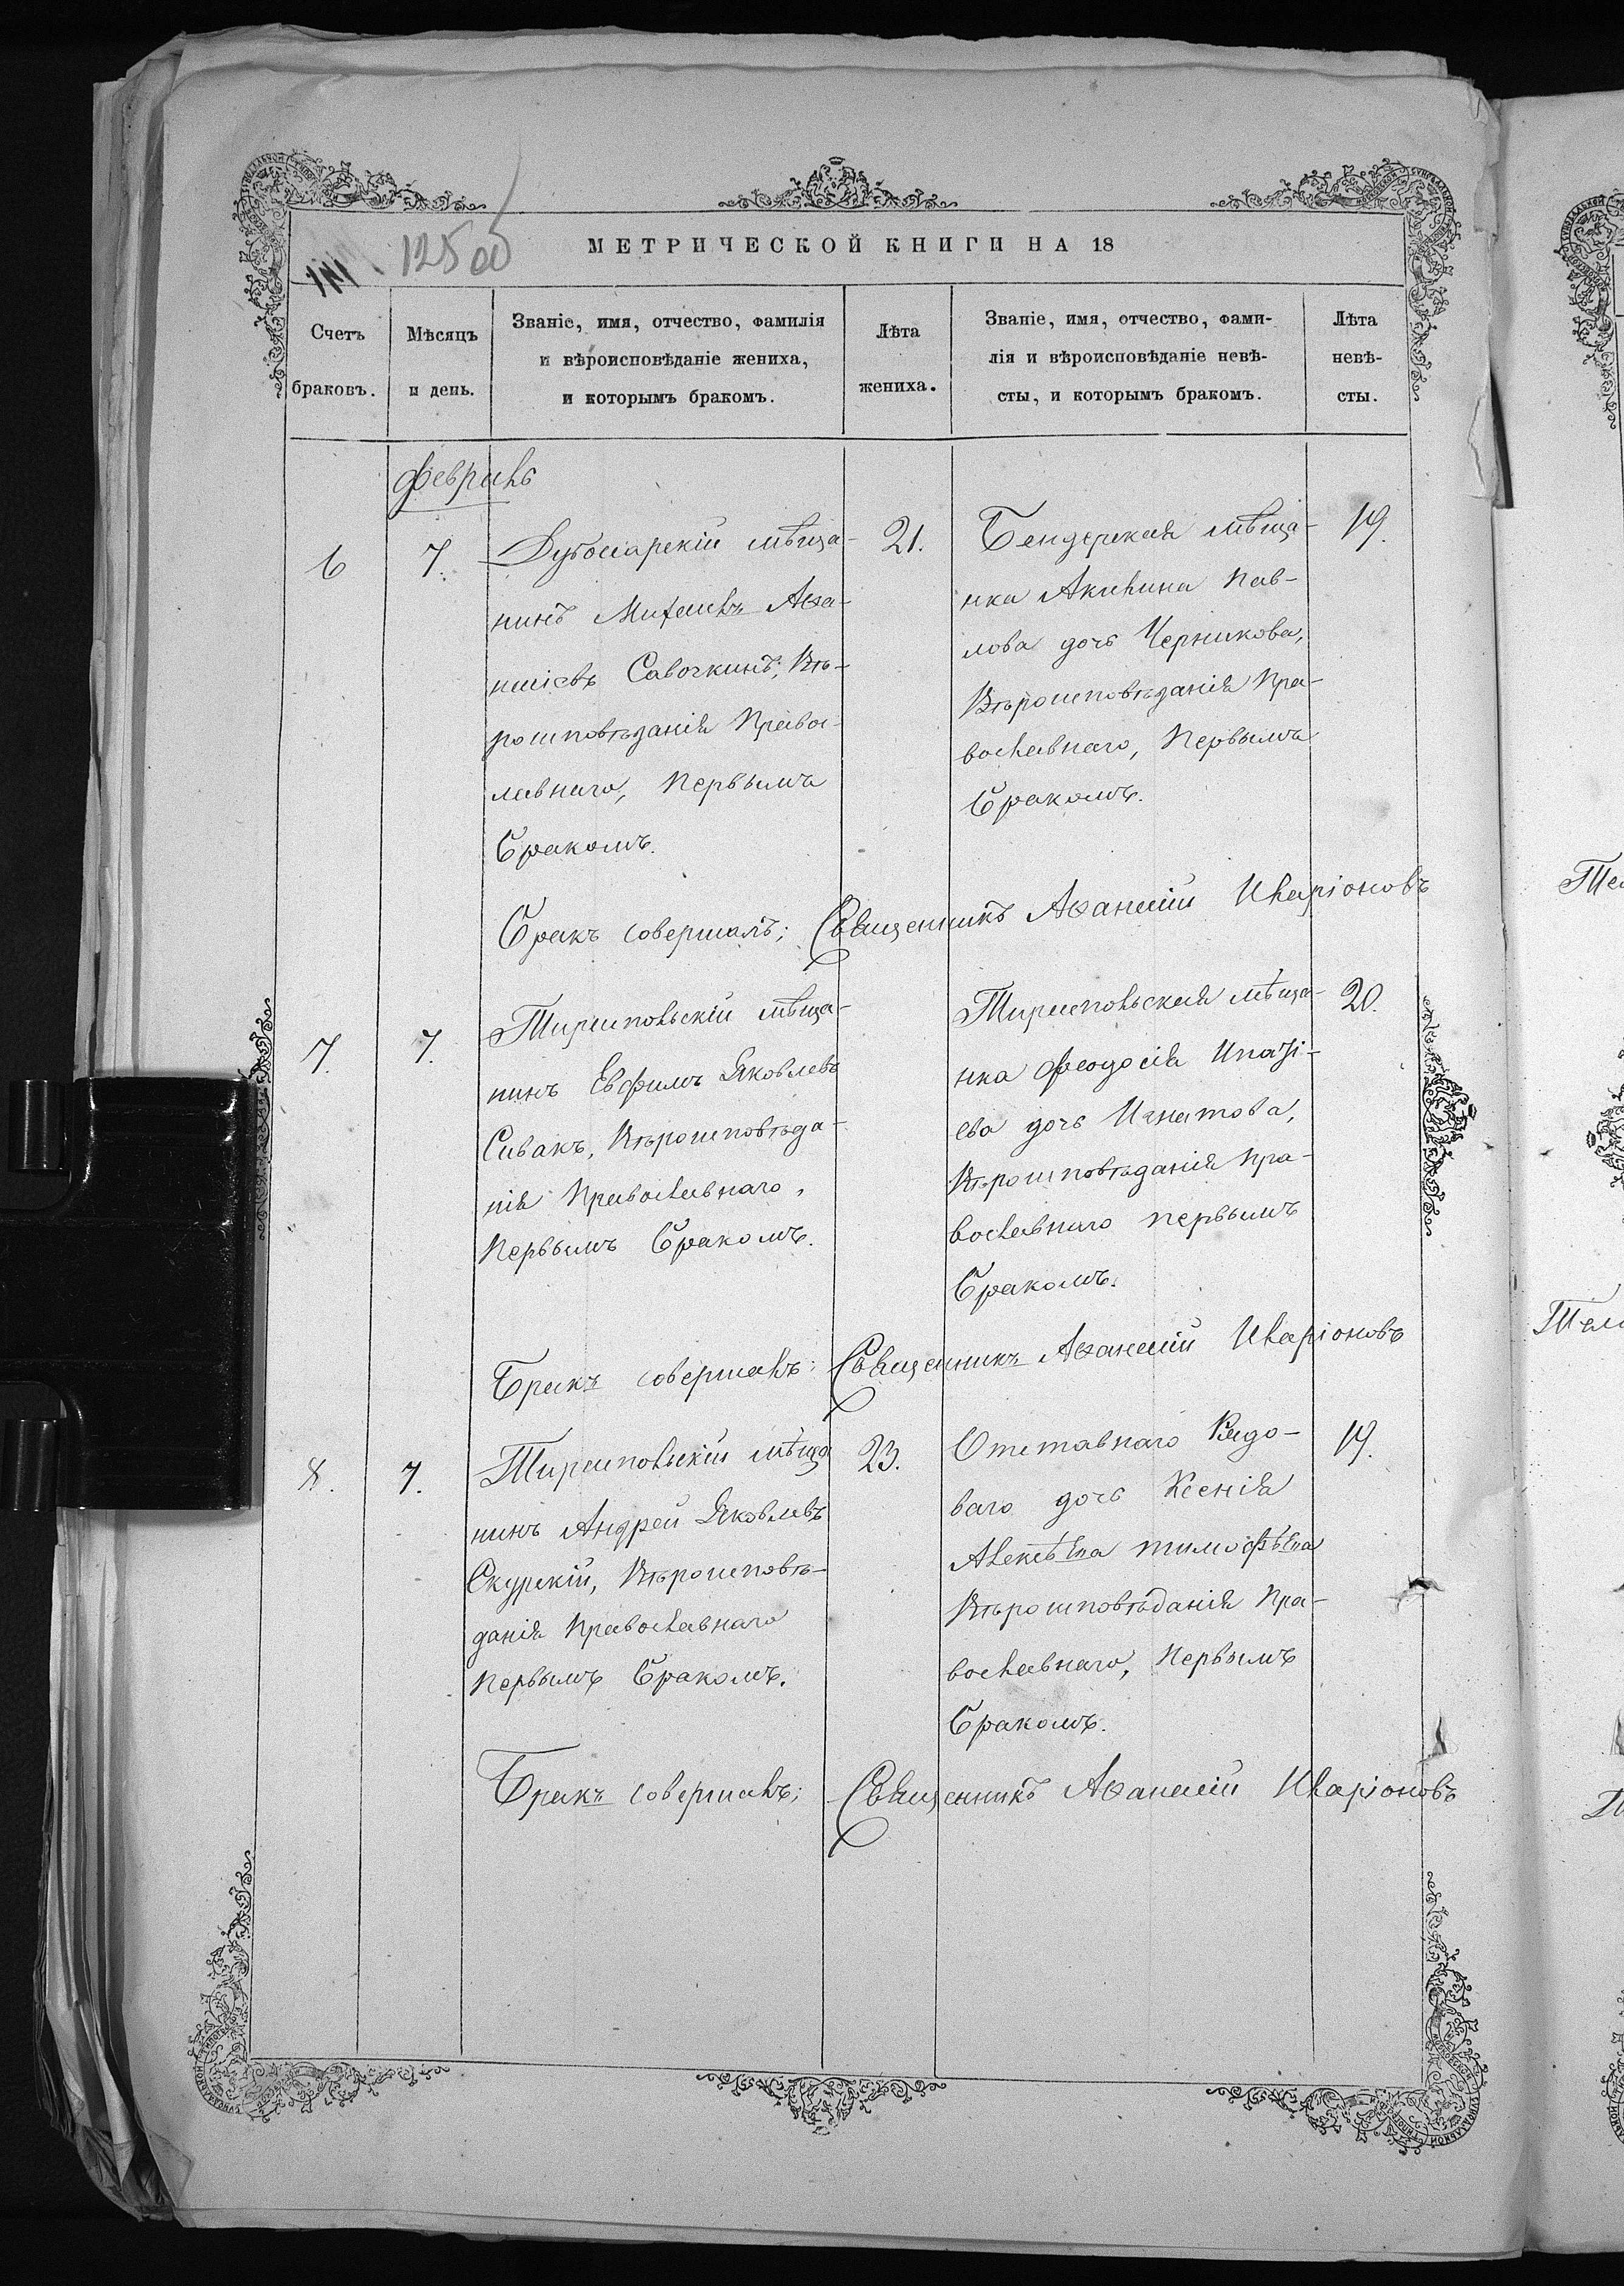 125 об
МЕТРИЧЕСКОЙ КНИГИ НА 18
Счетъ браковъ.
Мѣсяцъ и день.
Званіе, имя, отчество, фамилія
и вѣроисповѣданіе жениха,
и которымъ бракомъ.
Лѣта жениха.
Званіе, имя, отчество, фами-
лія и вѣроисповѣданіе невѣ-
сты, и которымъ бракомъ.
Лѣта невѣ-
сты.
Февраль
6
7.
Дубосарскій мѣща-
нинъ Михаилъ Аѳа-
насіевъ Савочкинъ, Вѣ-
роисповѣданія Правос-
лавнаго, Первымъ
Бракомъ.
21.
Бендерская мѣща-
нка Акилина Пав-
лова дочь Черникова,
Вѣроисповѣданія Пра-
вославнаго, Первымъ
Бракомъ.
19.
Бракъ совершалъ; Священникъ Аѳанасій Иларіоновъ
7.
7.
Тираспольскій мѣща-
нинъ Евфимъ Яковлевъ
Сивакъ, Вѣроисповѣда-
нія Православнаго,
Первымъ Бракомъ.
Тираспольская мѣща-
нка Феодосія Игнатова,
ева дочь
Вѣроисповѣданія Пра-
вославнаго первымъ
Бракомъ.
20.
Бракъ совершалъ: Священникъ Аѳанасій Иларіоновъ
8.
7.
Тираспольскій мѣща
нинъ Андрей Яковлевъ
Скурскій, Вѣроисповѣ-
данія Православнаго
Первымъ Бракомъ.
23.
Отставнаго Рядо-
ваго дочь Ксенія
Алексѣева Тимофѣева
Вѣроисповѣданія Пра-
вославнаго, Первымъ
Бракомъ.
19.
Бракъ совершалъ; Священникъ Аѳанасій Иларіоновъ